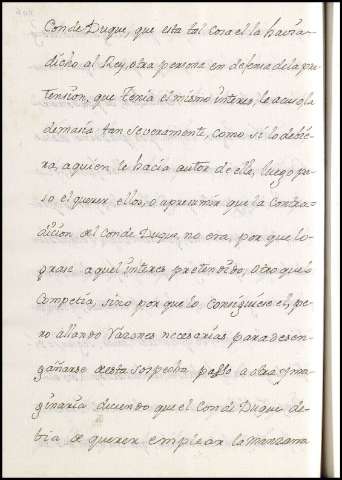 Conde Duque, que esta tal cosa el la havia
dicho al Rey, otra persona en defensa de la pre
tension, que tenia el mismo interes, le acusola
demasia tan severamente, como si lo debie
ra, a quien le hacia autor de ella, luego pa
so el querer ellos, o apresumir que la contra
dicion del Conde Duque, no era, por que lo
grase aquel interes pretendido, otro que lo
Competia, sino por que lo consiguiese el, pe
ro allando razones necesarias para desen
gañarse desta sospecha paso a otra yma
ginaria diciendo que el Conde Duque de
bia de querer emplear la manzana